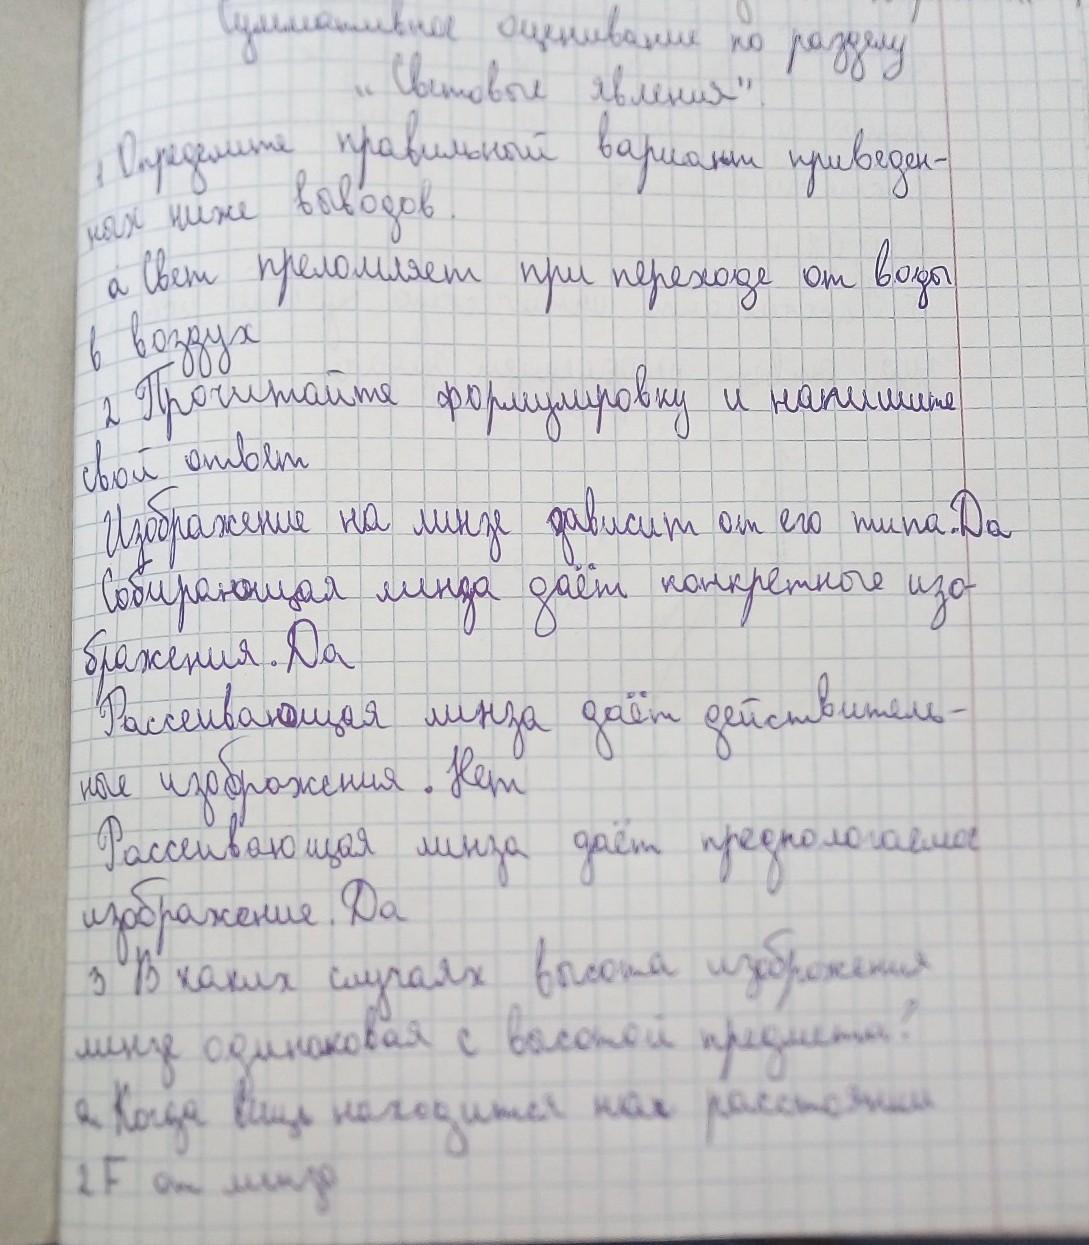 Суммативное оценивание по разделу
"Световые явления".
1 Определите правильный вариант приведен-
ных ниже выводов.
а Свет преломляет при переходе от воды
в воздух
2 Прочитайте формулировку и напишите
свой ответ
Изображение на линзе зависит от его типа. Да
Собирающая линза даёт конкретные изо-
бражения. Да
Рассеивающая линза даёт действитель-
ные изображения. Нет
Рассеивающая линза даёт предпологаемое
изображение. Да
3 В каких случаях высота изображения
линзе одинаковая с высотой предмета?
а Когда вещь находится на расстоянии
2F от линзы